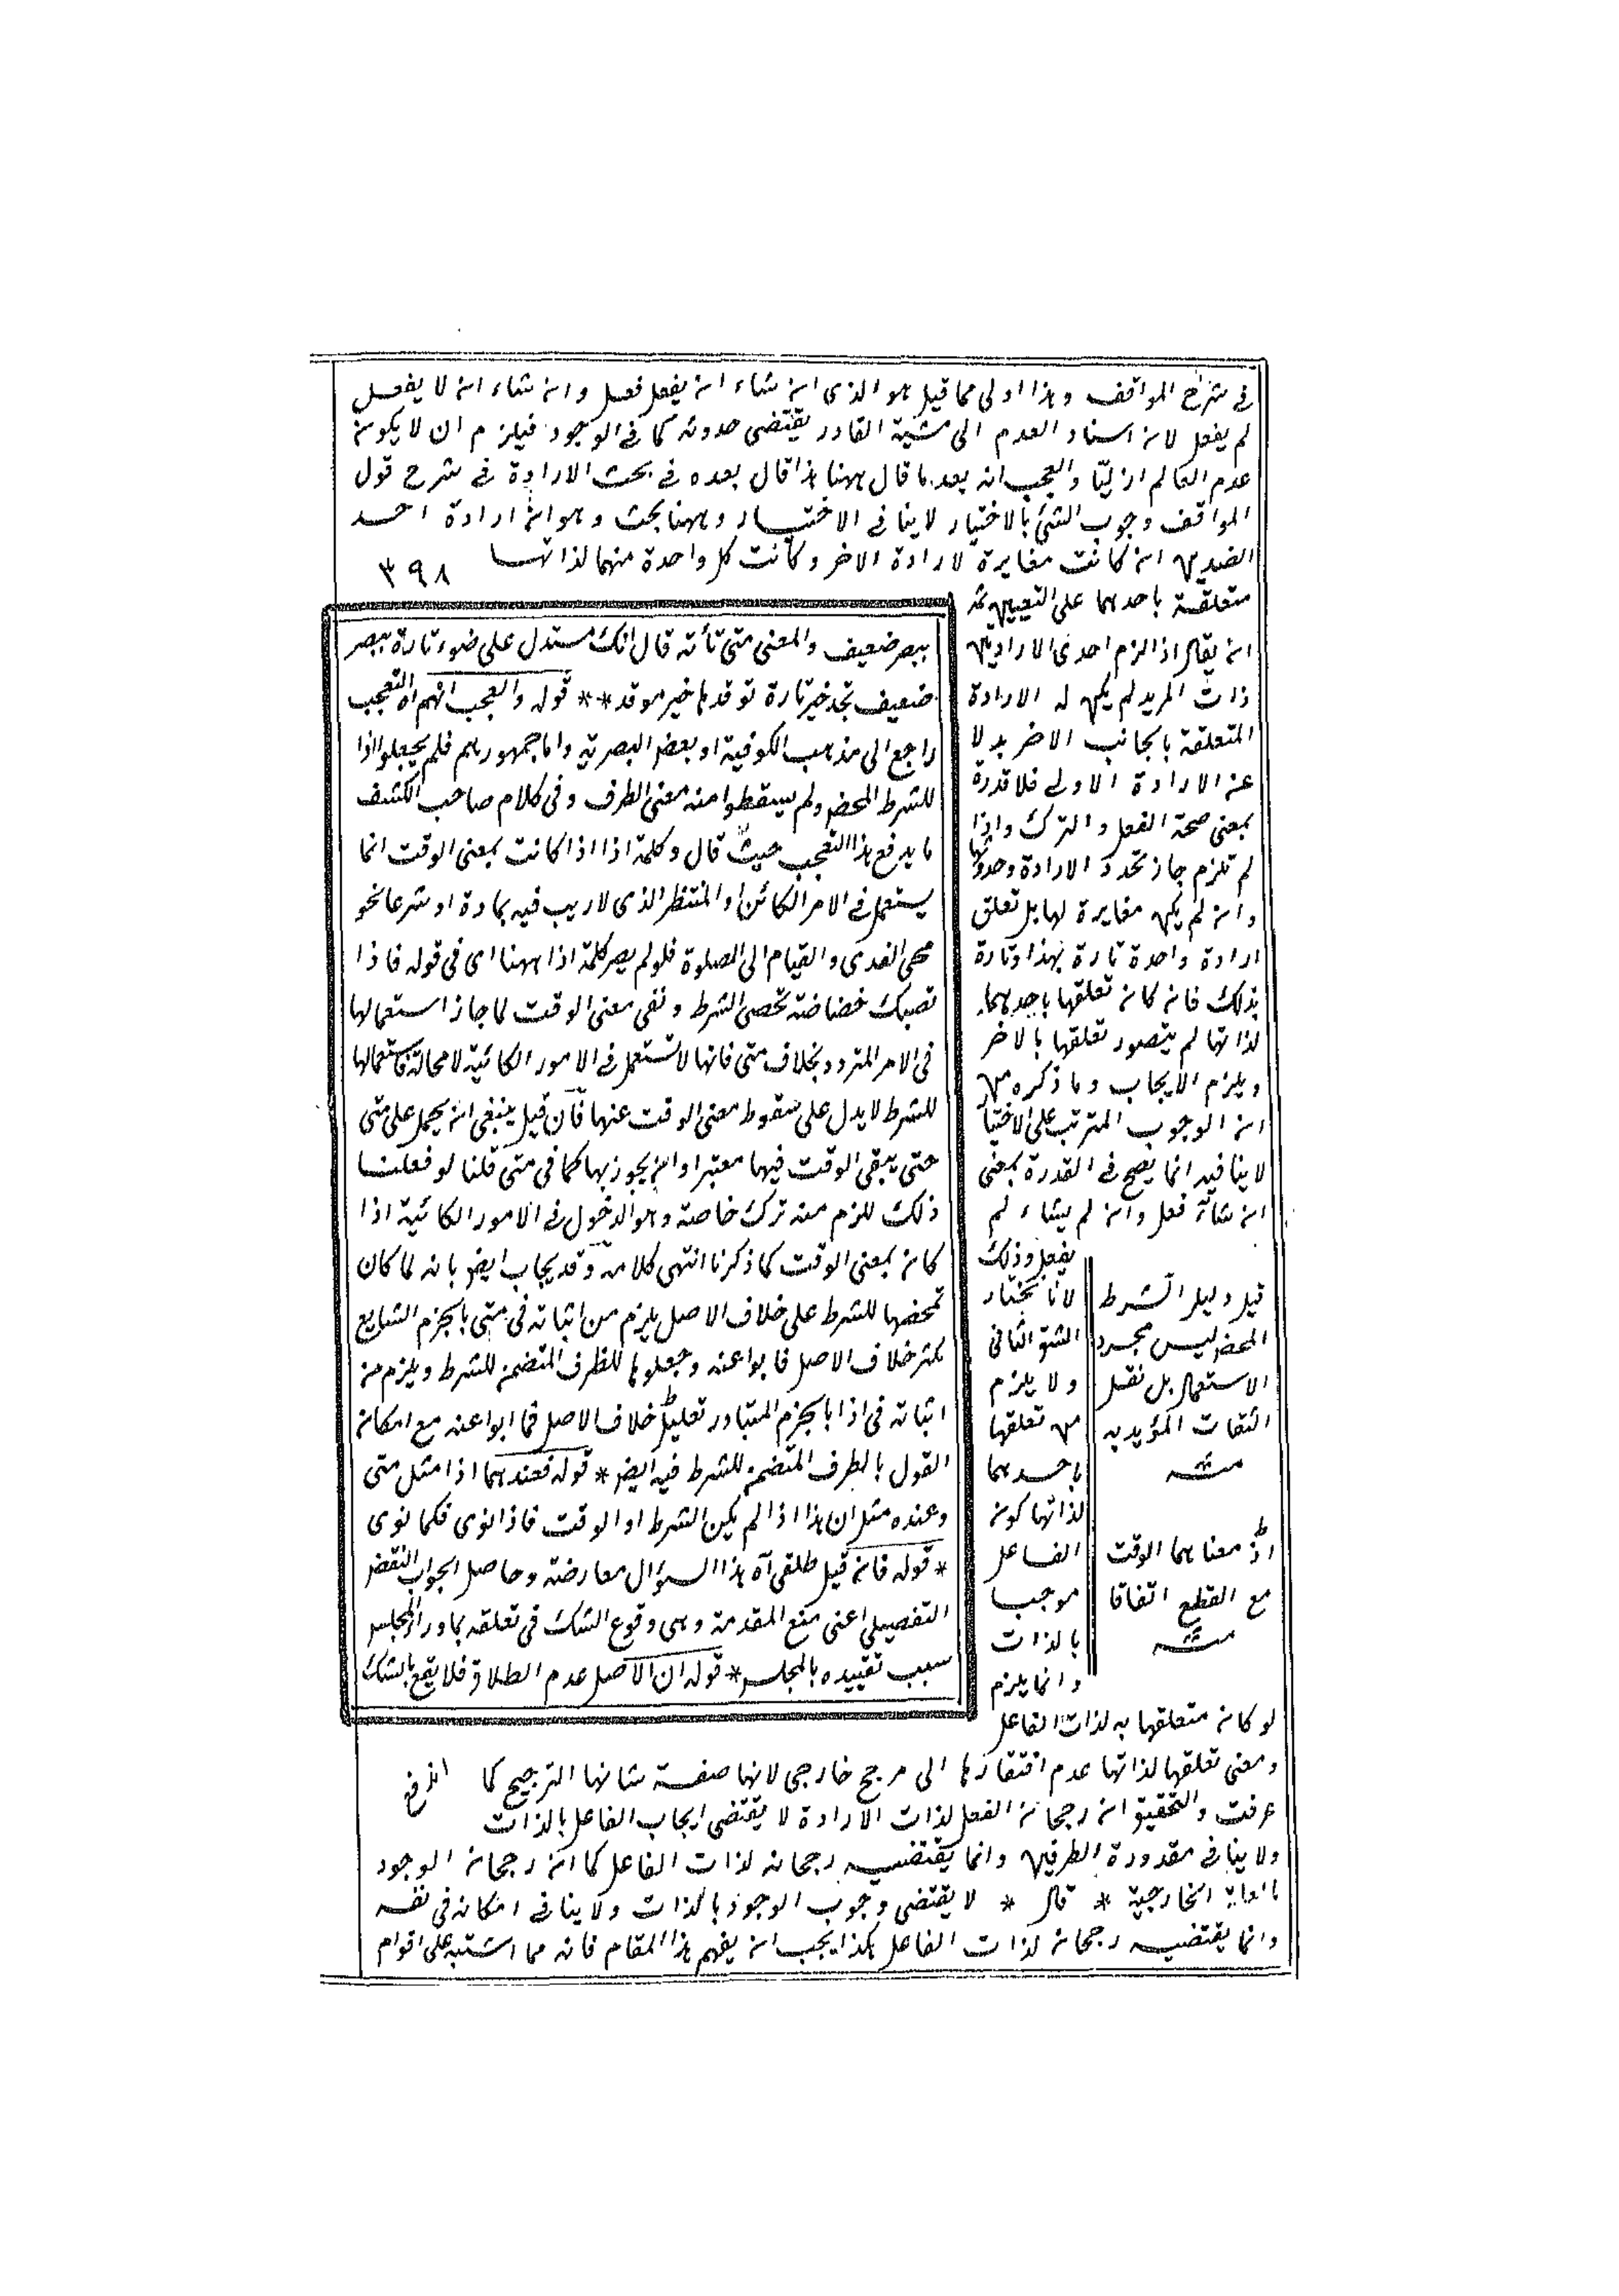 في شرح المواقف وهذا اولى مما قيل هو الذى ان شاء ان يفعل فعل وان شاء ان لا يفعل
لم يفعل لان اسناد العدم الى مشية القادر يقتضى حدوثه كما في الوجود فيلزم ان لا يكون
عدم العالم ازليّا والعجب انه بعد ما قال ههنا هذا قال بعده في بحث الارادة في شرح قول
المواقف وجوب الشئ بالاختيار لا ينافى الاختيار وههنا بحث وهو ان ارادة احد
الضدين ان كانت مغايرة لارادة الاخر وكانت كل واحدة منهما لذاتها
٣٩٨
متعلقة باحدهما على التعيين
ان يقال اذا لزم احدى الارادتين
ذات المريد لم يكن له الارادة
المتعلقة بالجانب الاخر بدلا
عن الارادة الاولى فلا قدرة
بمعنى صحة الفعل والترك واذا
لم تلزم جاز تجدد الارادة وحدوثها
وان لم يكن مغايرة لها بل تعلق
ارادة واحدة تارة بهذا وتارة
بذلك فان كان تعلقها باحدهما
لذاتها لم يتصور تعلقها بالاخر
ويلزم الايجاب وما ذكره من
ان الوجوب المترتب على الاختيا
لا ينافيه انما يصح في القدرة بمعنى
ان شاء فعل وان لم يشاء لم
يفعل وذلك
لانا نختار
الشق الثانى
ولا يلزم
من تعلقها
باحدهما
لذاتها كون
الفاعل
موجبا
بالذات
وانما يلزم
لو كان متعلقها به لذات الفاعل
ومعنى تعلقها لذاتها عدم افتقارها الى مرجح خارجى لانها صفة شانها الترجيح كما
عرفت والتحقيق ان رجحان الفعل لذات الارادة لا يقتضى ايجاب الفاعل بالذات
ولا ينافى مقدورة الطرفين وانما يقتضيه رجحانه لذات الفاعل كما ان رجحان الوجود
بالعلة الخارجية * قال * لا يقتضى وجوب الوجود بالذات ولا ينافى امكانه في نفسه
وانما يقتضيه رجحانه لذات الفاعل هكذا يجب ان يفهم هذا المقام فانه مما اشتبه على اقوام
ببصر ضعيف والمعنى متى تأته قال انك مستدل على ضوء تارة ببصر
ضعيف تجد خير تارة توقدها خير موقد ** قوله والعجب انهم اه التعجب
راجع الى مذهب الكوفية او بعض البصرية واما جمهورهم فلم يجعلوا اذا
للشرط المحض ولم يسقطوا منه معنى الظرف وفى كلام صاحب الكشف
ما يدفع هذا التعجب حيث قال وكلمة اذا اذا كانت بمعنى الوقت انما
يستعمل في الامر الكائن او المنتظر الذى لا ريب فيه بمادة او شرعا نحو
مجئ الغدى والقيام الى الصلوة فلو لم يصر كلمة اذا ههنا اى في قوله فاذا
تصبك خصاصة تحصى الشرط ونفى معنى الوقت لما جاز استعمالها
فى الامر المتردد بخلاف متى فانها لا تستعمل في الامور الكائنة لا محالة فاستعمالها
للشرط لا يدل على سقوط معنى الوقت عنها فان قيل ينبغى ان يحمل على متى
حتى يبقى الوقت فيها معتبرا وان يجوز بها كما في متى قلنا لو فعلنا
ذلك للزم منه ترك خاصته وهو الدخول في الامور الكائنة اذا
كان بمعنى الوقت كما ذكرنا انتهى كلامه وقد يجاب ايض بانه لما كان
تمحضها للشرط على خلاف الاصل يلزم من اثباته في متى بالجزم الشايع
بكثر خلاف الاصل فابوا عنه وجعلوها للظرف المتضمن للشرط ويلزم من
اثباته في اذا بالجزم المتبادر تعليل خلاف الاصل فما ابوا عنه مع امكان
القول بالظرف المتضمن للشرط فيه ايض * قوله فعندهما اذا مثل متى
وعنده مثل ان هذا اذا لم يكن الشرط او الوقت فاذا نوى فكما نوى
* قوله فان قيل طلقى آه هذا السؤال معارضة وحاصل الجواب النقض
التفصيلى اعنى منع المقدمة وهى وقوع الشك في تعلقه بما وراء المجلس
سبب تقييده بالمجلس * قوله ان الاصل عدم الطلاق فلا يقع بالشك
قيل دليل الشرط
المحض ليس مجرد
الاستعمال بل نقل
الثقات المؤيد به
منه
اذ معناهما الوقت
مع القطع اتفاقا
منه